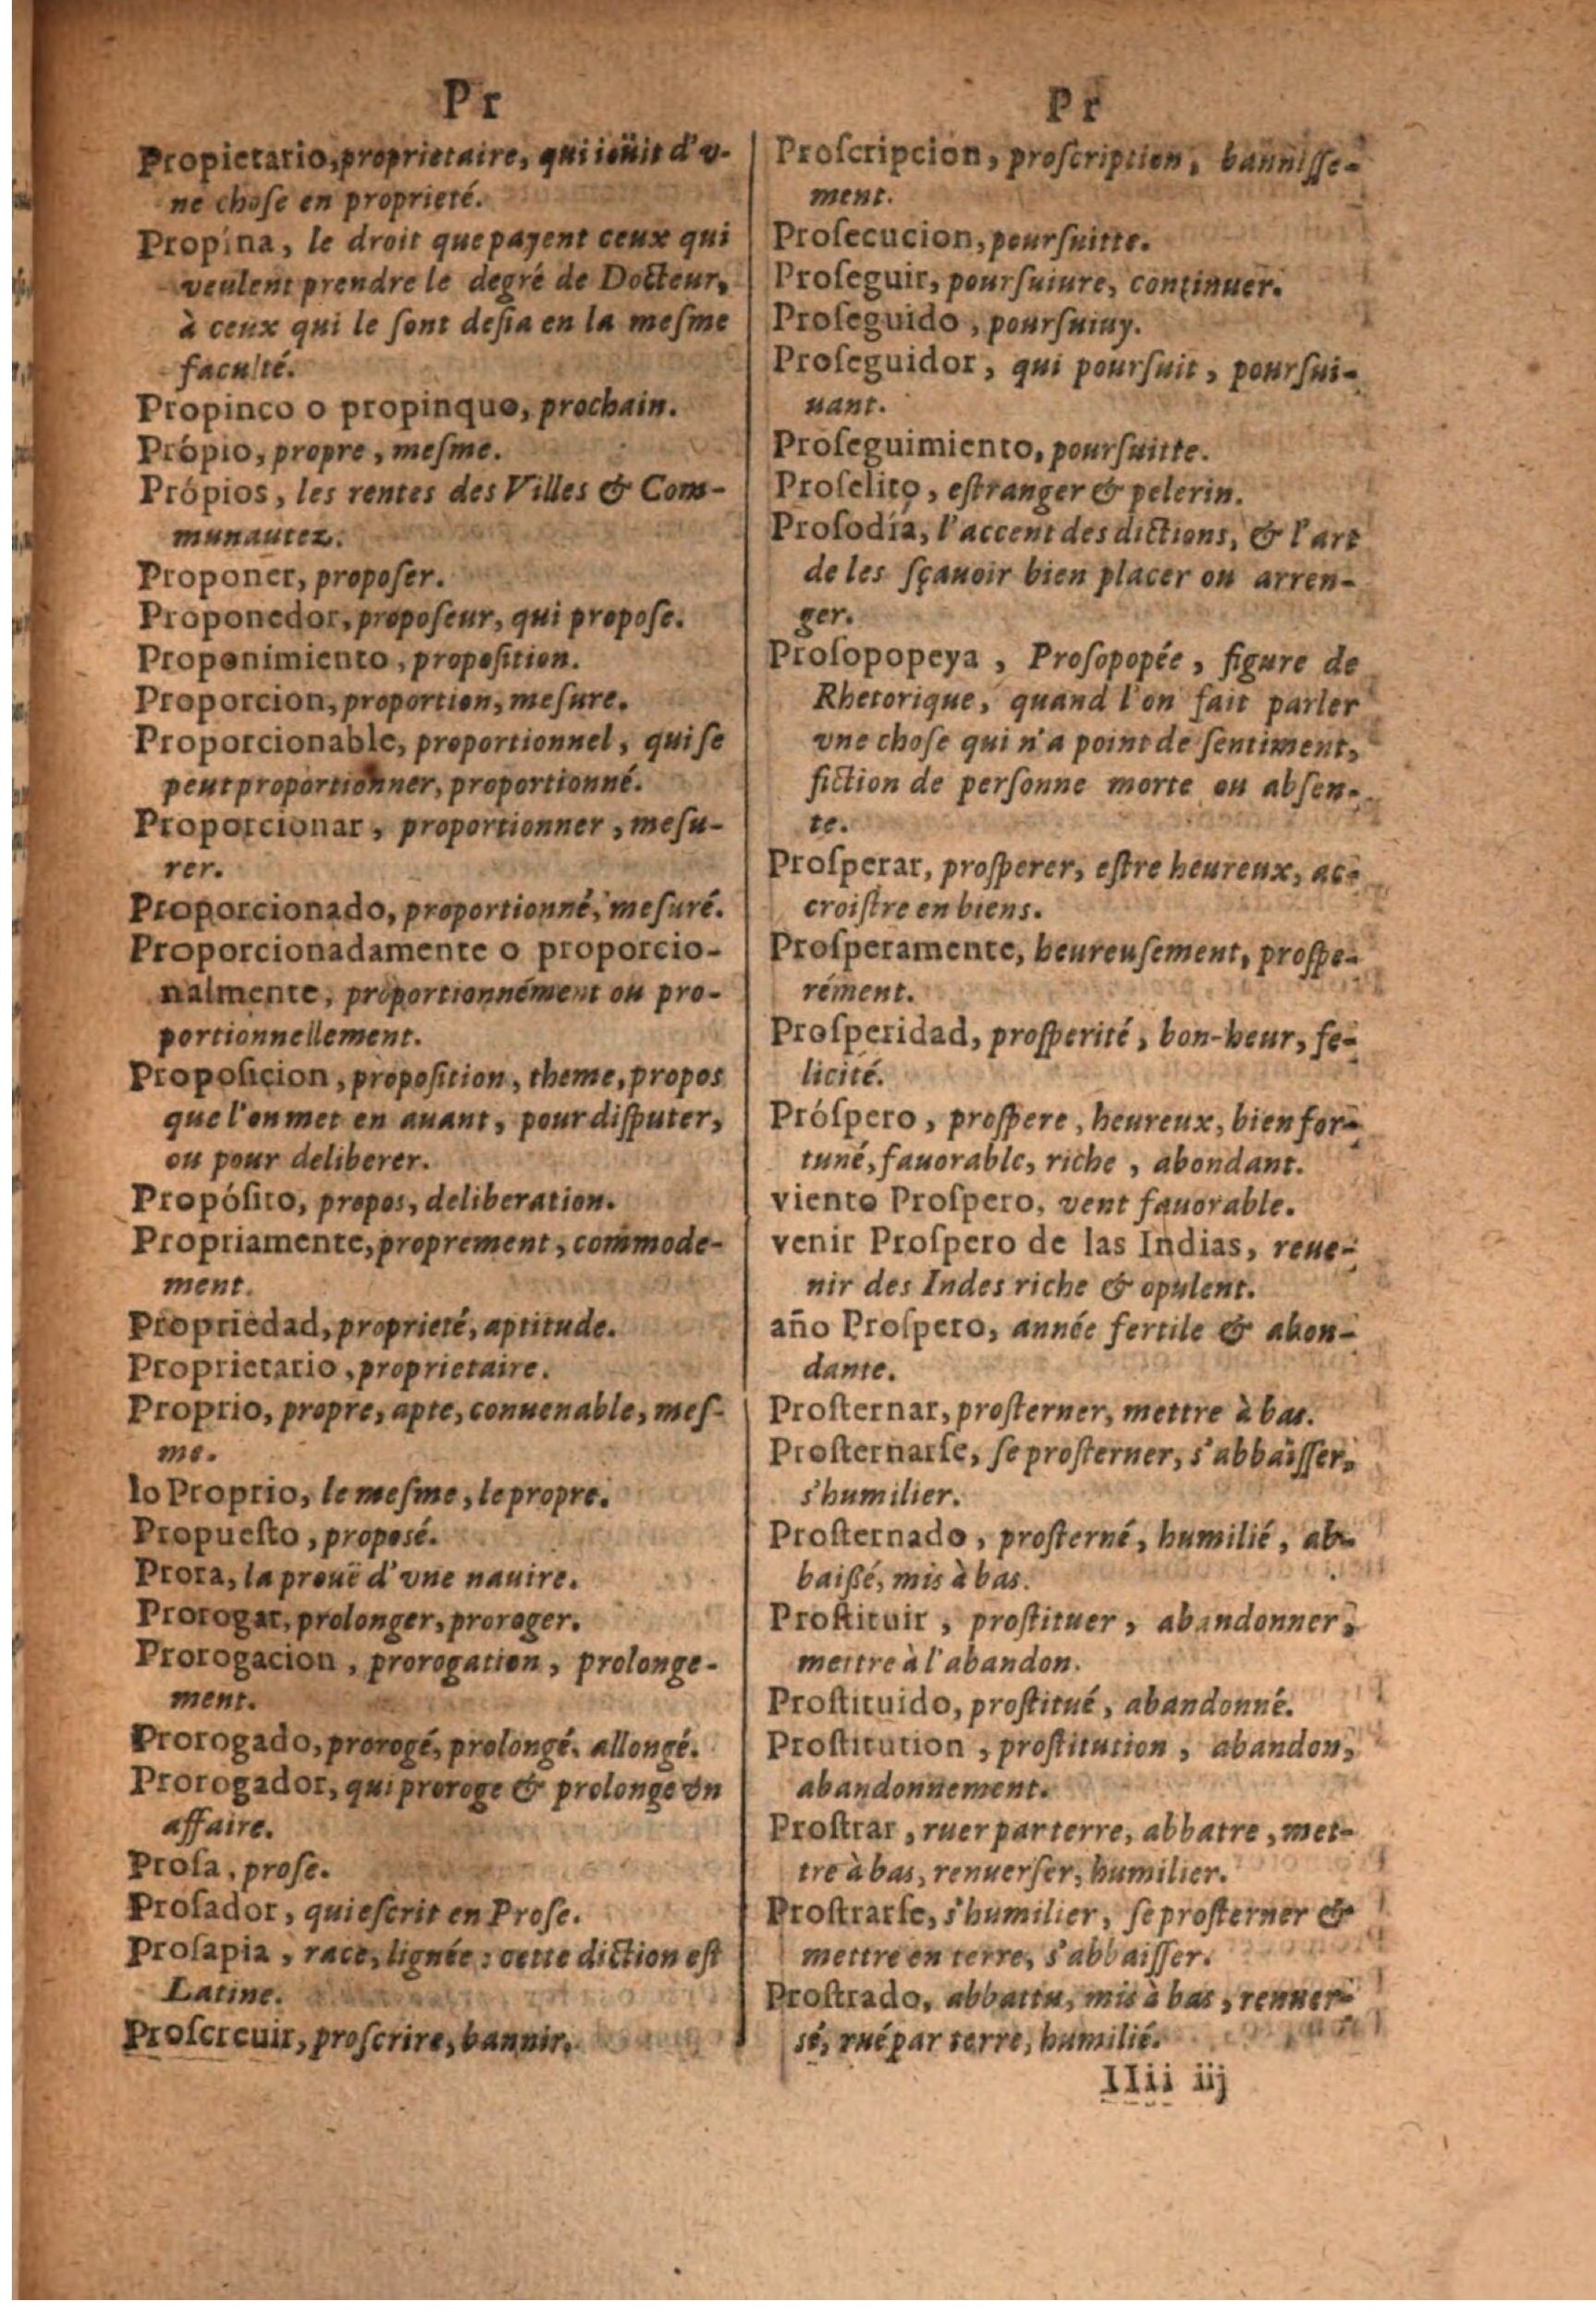 Pr
Propietario, proprietaire, qui ioüit d'v-
ne chose en proprieté.
Propina, le droit que payent ceux qui
veulent prendre le degré de Docteur,
à ceux qui le ſont deſia en la meſme
faculté.
Propinco o propinquo, prochain.
Própio, propre, meſme.
Própios, les rentes des Villes & Com-
munautez.
Proponer, propoſer.
Proponedor, propoſeur, qui propoſe.
Proponimiento, propoſition.
Proporcion, proportion, meſure.
Proporcionable, proportionnel, qui ſe
peut proportionner, proportionné.
Proporcionar, proportionner, meſu-
rer.
Proporcionado, proportionné, meſuré.
Proporcionadamente o proporcio-
nalmente, proportionnément ou pro-
portionnellement.
Propoſicion, propoſition, theme, propos
que l'on met en auant, pour diſputer,
ou pour deliberer.
Propóſito, propos, deliberation.
Propriamente, proprement, commode-
ment.
Propriedad, proprieté, aptitude.
Proprietario, proprietaire.
Proprio, propre, apte, conuenable, meſ-
me.
lo Proprio, le meſme, le propre.
Propueſto, proposé.
Prora, la prouë d'vne nauire.
Prorogar, prolonger, proroger.
Prorogacion, prorogation, prolonge-
ment.
Prorogado, prorogé, prolongé, allongé.
Prorogador, qui proroge & prolonge vn
affaire.
Proſa, proſe.
Proſador, qui eſcrit en Proſe.
Proſapia, race, lignée : cette diction eſt
Latine.
Proſcreuir, proſcrire, bannir.
Pr
Proſcripcion, proſcription, banniſſe-
ment.
Proſecucion, pourſuitte.
Proſeguir, pourſuiure, continuer.
Proſeguido, pourſuiuy.
Proſeguidor, qui pourſuit, pourſui-
uant.
Proſeguimiento, pourſuitte.
Proſelito, eſtranger & pelerin.
Proſodía, l'accent des dictions, & l'art
de les ſçauoir bien placer ou arren-
ger.
Proſopopeya, Proſopopée, figure de
Rhetorique, quand l'on fait parler
vne choſe qui n'a point de ſentiment,
fiction de perſonne morte ou abſen-
te.
Proſperar, proſperer, eſtre heureux, ac-
croiſtre en biens.
Proſperamente, heureuſement, proſpe-
rément.
Proſperidad, proſperité, bon-heur, fe-
licité.
Próſpero, proſpere, heureux, bien for-
tuné, fauorable, riche, abondant.
viento Proſpero, vent fauorable.
venir Proſpero de las Indias, reue-
nir des Indes riche & opulent.
año Proſpero, année fertile & abon-
dante.
Proſternar, proſterner, mettre à bas.
Proſternarſe, ſe proſterner, s'abbaiſſer,
s'humilier.
Proſternado, proſterné, humilié, ab-
baißé, mis à bas.
Proſtituir, proſtituer, abandonner,
mettre à l'abandon.
Proſtituido, proſtitué, abandonné.
Proſtitution, proſtitution, abandon,
abandonnement.
Proſtrar, ruer par terre, abbatre, met-
tre à bas, renuerſer, humilier.
Proſtrarſe, s'humilier, ſe proſterner &
mettre en terre, s'abbaiſſer.
Proſtrado, abbattu, mis à bas, renuer-
sé, rué par terre, humilié.
IIii iij